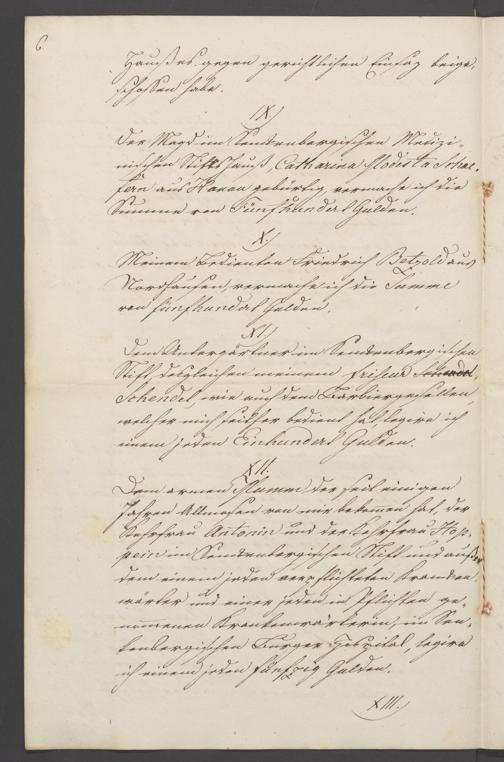 6.
Haußes gegen gerichtlichen Einsaz beige,
schossen habe.
IX.)
Der Magd im Senkenbergischen Medizi-
nischen Stifts Hauß, Catharina Modesta
aus Hanau gebürtig vermache ich die
Summe von Fünfhundert Gulden.
X.)
Meinem Bedienten Friedrich Betzold aus
Nordhausen, vermache ich die Summe
von fünfhundert Gulden.
XI.)
Dem Untergärtner im Senkenbergischen
Stift, desgleichen meinem friseur
Schendel, wie auch dem Barbiergesellen
welcher mich seither bedient hat, legire ich
einem jeden Einhundert Gulden.
XII.
Dem armen der seit einigen
Jahren Allmosen von mir bekomen hat, der
Kehrfrau Antonin und der Kehrfrau Hop-
pein im Senkenbergischen Stift und außer
dem einem jeden verpflichteten Kranken
wärter und einer jeden in Pflichten ge-
nommenen Krankenwärterin, im Sen,
kenbergischen Burger Hospital, legire
ich einem jeden fünfzig Gulden.
XIII.)